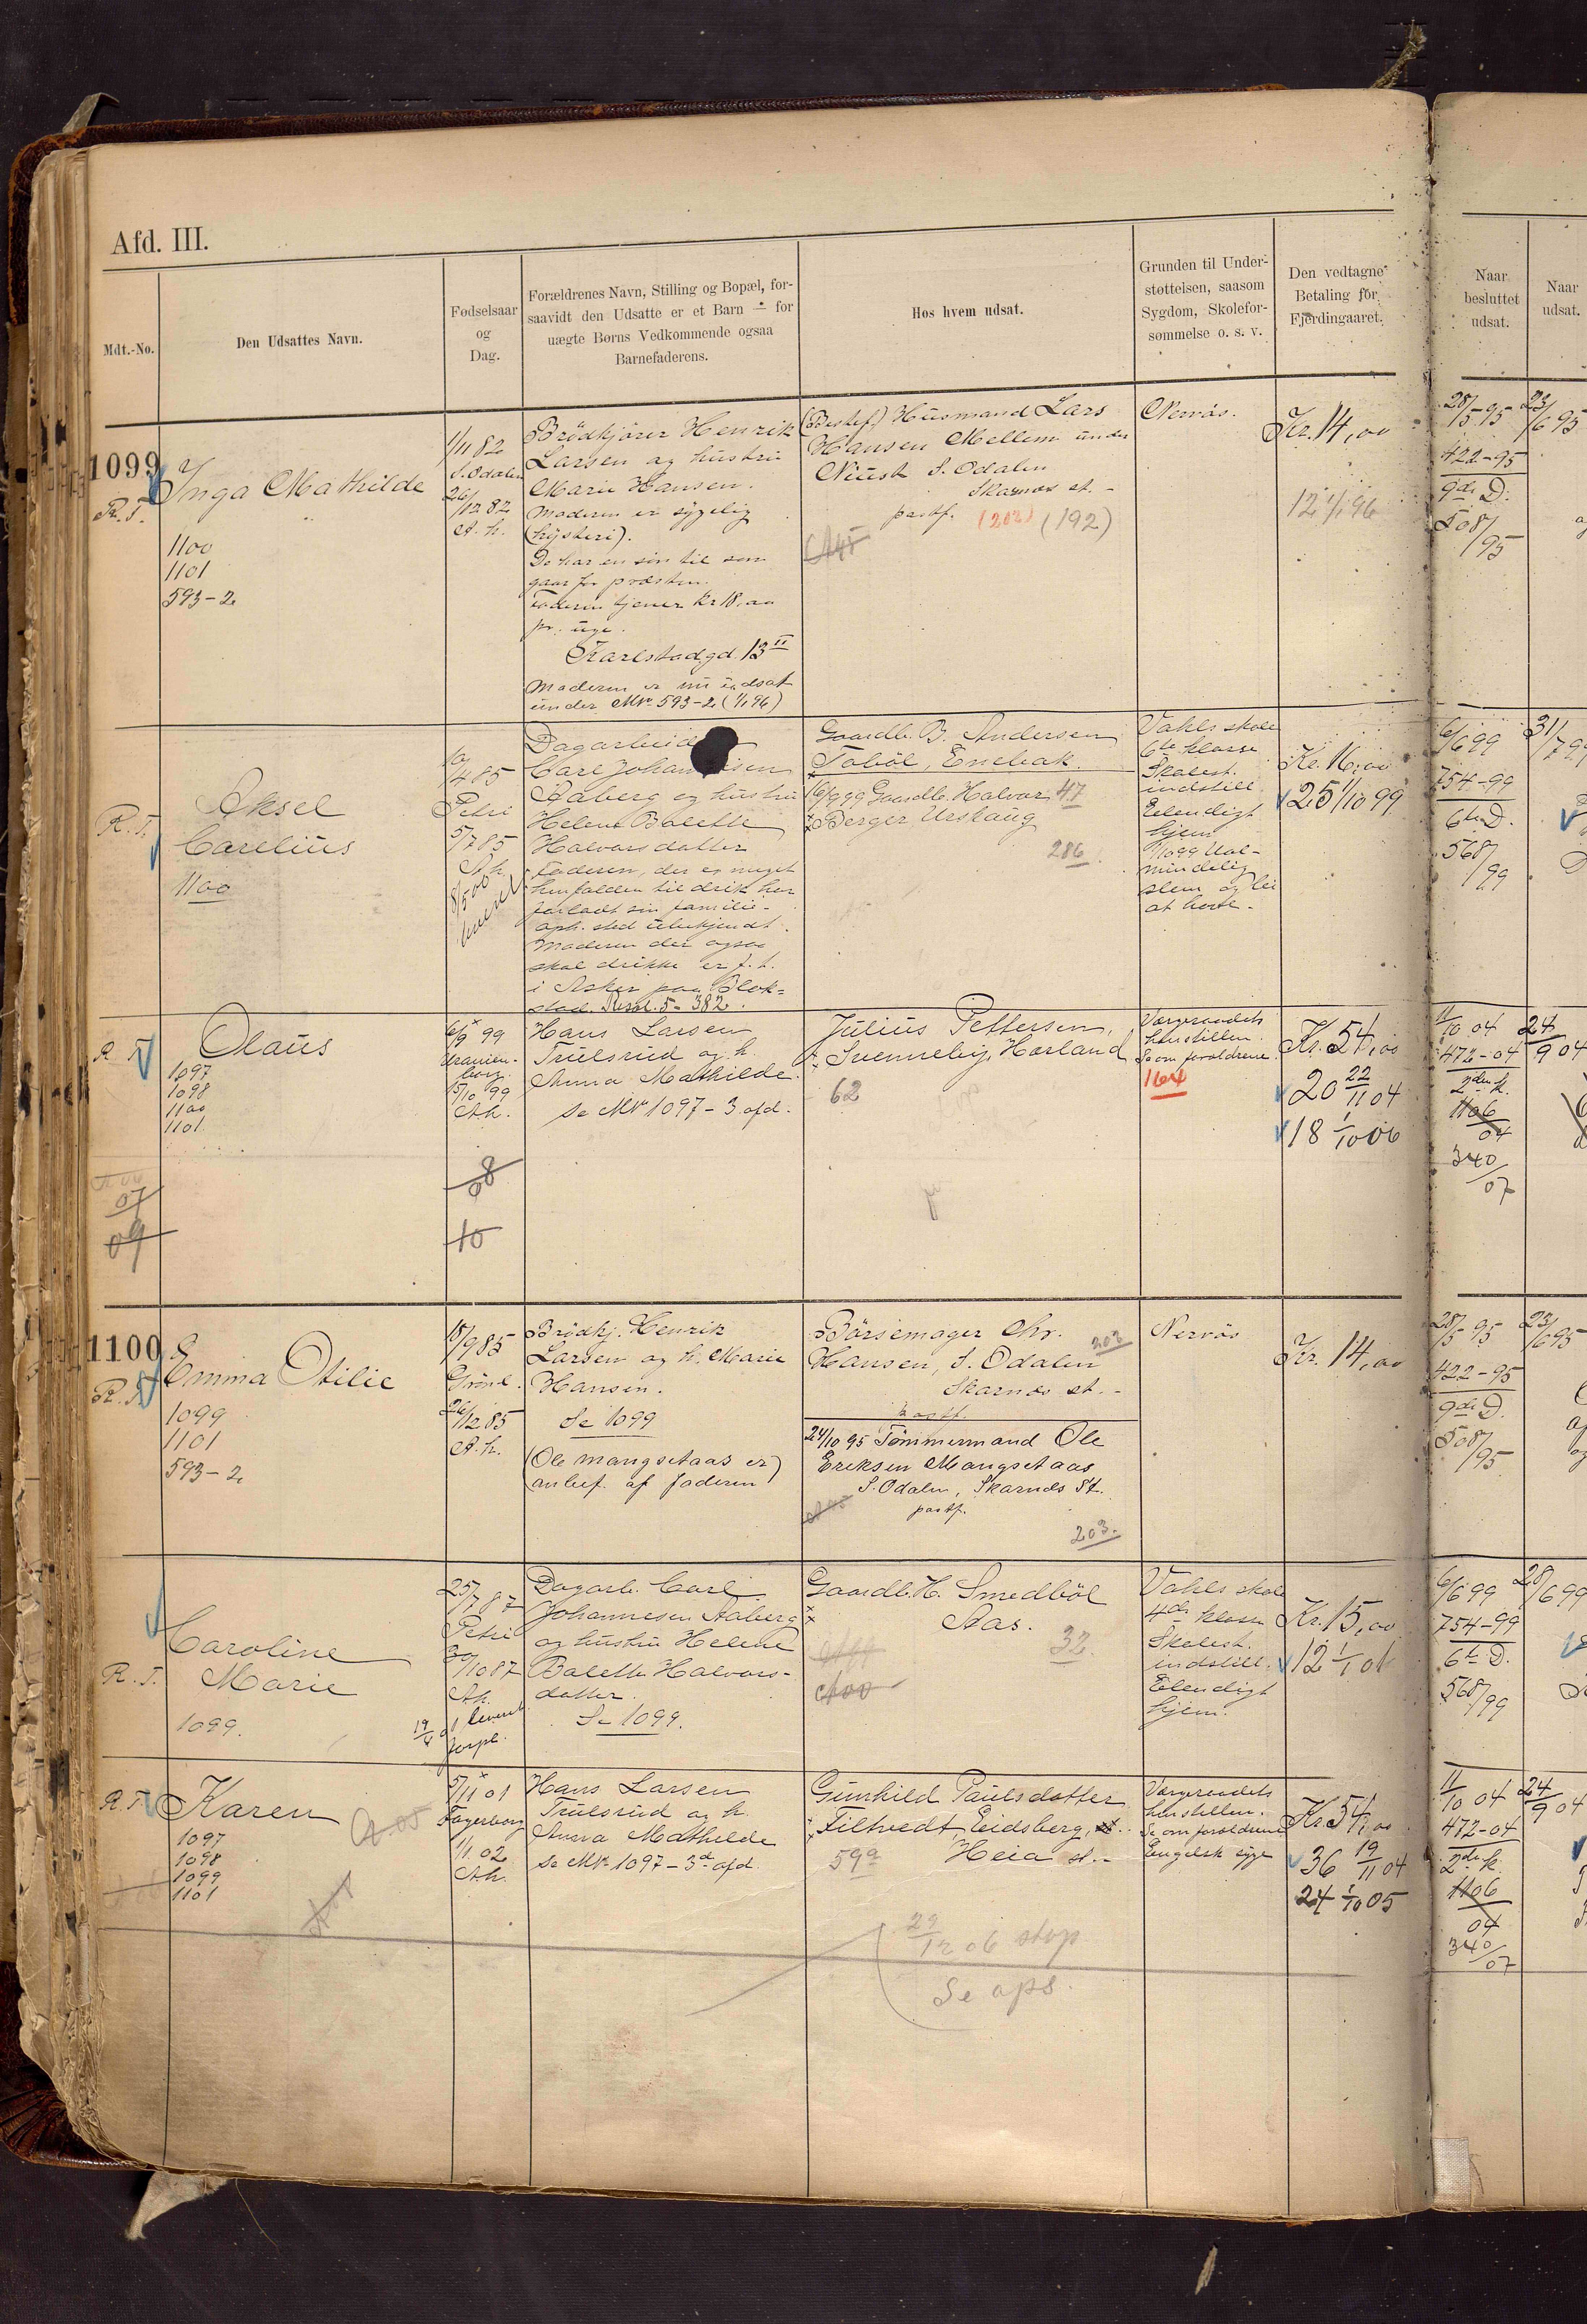 Afd. III.
Mdt.-No.
Den Udsattes Navn.
Fødselsaar
og
Dag.
Forældrenes Navn, Stilling og Bopæl, for-
saavidt den Udsatte er et Barn — for
uægte Børns Vedkommende ogsaa
Barnefaderens.
Hos hvem udsat.
Grunden til Under-
støttelsen, saasom
Sygdom, Skolefor-
sømmelse o. s. v.
Den vedtagne
Betaling for
Fjerdingaaret.
Naar
besluttet
udsat.
Naar
udsat.
1099
R. T.
Inga Mathilde
1100
1101
593-2
1/11 82
S. Odalen
26/12 82
A. h.
Brödkjörer Henrik
Larsen og hustru
Marie Hansen.
Moderen er sygelig
(hysteri).
De har en sön til som
gaar for præsten.
Faderen tjener Kr 18,00
pr. uge.
Karlstadgd. 13 II
Moderen er nu udsat
under Mk 593-2 (1/1 96)
(Bestef.) Husmand Lars
Hansen Mellem under
Niust S. Odalen
Skarnæs st. -
postf. (202) (192)
Nervös.
Kr. 14,00
12 1/1 96
28/5 95
422-95
9de D.
508/95
23/6 95
R. T.
Aksel
Carelius
1100
10/4 85
Petri
5/7 85
8/5 00
Dagarbeid
Carl Johan sen
Aaberg og hustru
Helene Balette
Halvorsdatter
Faderen, der er meget
henfalden til drik har
forladt sin familie -
oph. sted ubekjendt.
Moderen der ogsaa
skal drikke er f. t.
i Asker paa Blok-
stad. Resol. 5-382.
Gaardb. B. Andersen
Taböl, Enebak.
16/9 99 Gaardb. Halvor 47
Berger Urskaug
286
Vahls skole
6te klasse
Skolest.
indstill.
Elendigt
hjem
1/10 99 Ual-
mindelig
slem og lei
at have.
Kr. 16,00
25 1/10 99
6/6 99
754-99
6te D.
568/99
31/7 99
R. T.
Olaus
1097
1098
1100
1101
07
09
6/9 99
Uranien-
borg.
15/10 99
Ah.
08
10
Hans Larsen
Trulsrud og h.
Anna Mathilde.
se Mk 1097 - 3 afd.
Julius Pettersen,
Svenneby, Harland
62
Værgeraadets
henstillen.
Se om forældrene
164
Kr. 54,00
20 22/11 04
18 1/10 06
11/10 04
472-04
2den k.
1106/04
340/07
24/9 04
1100
R. T.
Emma Otilie
1099
1101
593-2
18/9 85
Grönl.
26/12 85
A. h.
Brödkj. Henrik
Larsen og h. Marie
Hansen.
Se 1099
(Ole Mangsetaas er)
anbef. af faderen
Börsemager Chr.
Hansen, S. Odalen
202
Skarnæs st. -
postf.
24/10 95 Tömmermand Ole
Eriksen Mangsetaas
S. Odalen, Skarnæs St.
postf.
203.
Nervös
Kr. 14,00
28/5 95
422-95
9de D.
508/95
23/6 95
R. T.
Caroline
Marie
1099.
25/7 87
Petri
30/10 87
Ah.
Dagarb. Carl
Johannesen Aaberg
og hustru Helene
Balette Halvors-
datter.
Se 1099.
Gaardb. H. Smedböl
Aas.
32
Vahls skole
4de klasse
Skolest.
indstill.
Elendigt
hjem.
Kr. 15,00
12 1/1 01
6/6 99
754-99
6te D.
568/99
28/6 99
R. T.
Karen
1097
1098
1099
1101
5/11 01
Fagerborg
1/1 02
Ah.
Hans Larsen
Trulsrud og h.
Anna Mathilde
se Mk 1097 - 3d afd.
Gunhild Paulsdatter
Filtvedt Eidsberg,
59a Heia st. -
29/12 06 stop
Se ops.
Værgeraadets
henstillen.
Se om forældrene
Engelsk syge
Kr. 54,00
36 19/11 04
24 1/10 05
11/10 04
472-04
2den k.
1106/04
340/07
24/9 04